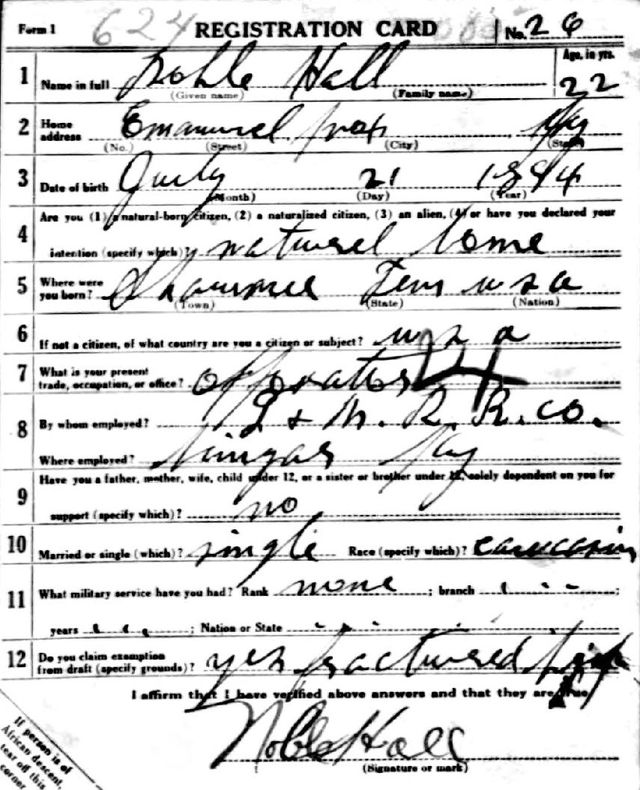 Form 1 624 REGISTRATION CARD No. 26
1 Name in full Noble Hall Age, in yrs. 22
(Given name) (Family name)
2 Home address Emanuel Ky
(No.) (Street) (City) (State)
3 Date of birth July 21 1894
(Month) (Day) (Year)
4 Are you (1) a natural-born citizen, (2) a naturalized citizen, (3) an alien, (4) or have you declared your
intention (specify which)? naturel
5 Where were you born? Shawnee Tenn u s a
(Town) (State) (Nation)
6 If not a citizen, of what country are you a citizen or subject? u s a
7 What is your present trade, occupation, or office? opporator 4
8 By whom employed? L + N. R. R. co.
Where employed? Ky
9 Have you a father, mother, wife, child under 12, or a sister or brother under 12, solely dependent on you for
support (specify which)? no
10 Married or single (which)? single Race (specify which)?
11 What military service have you had? Rank none ; branch ;
years ; Nation or State
12 Do you claim exemption from draft (specify grounds)? yes fractured
I affirm that I have verified above answers and that they are true.
Noble Hall
(Signature or mark)
If person is of
African descent,
tear off this
corner